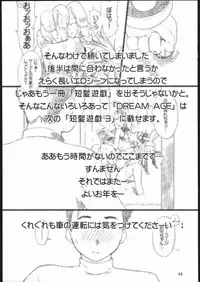 そんなわけで続いてしまいました
後半は間に合わなかったと言うか
えらく長いエロシーンになってしまうので
じゃあもう一冊「短髪遊戯」を出そうじゃないかと。
そんなこんないろいろあって「DREAM-AGE」は
次の「短髪遊戯3」に載せます。
ああもう時間がないのでここまでで…
すんません
それではまたー
よいお年をー
くれぐれも車の運転には気をつけてくださーい